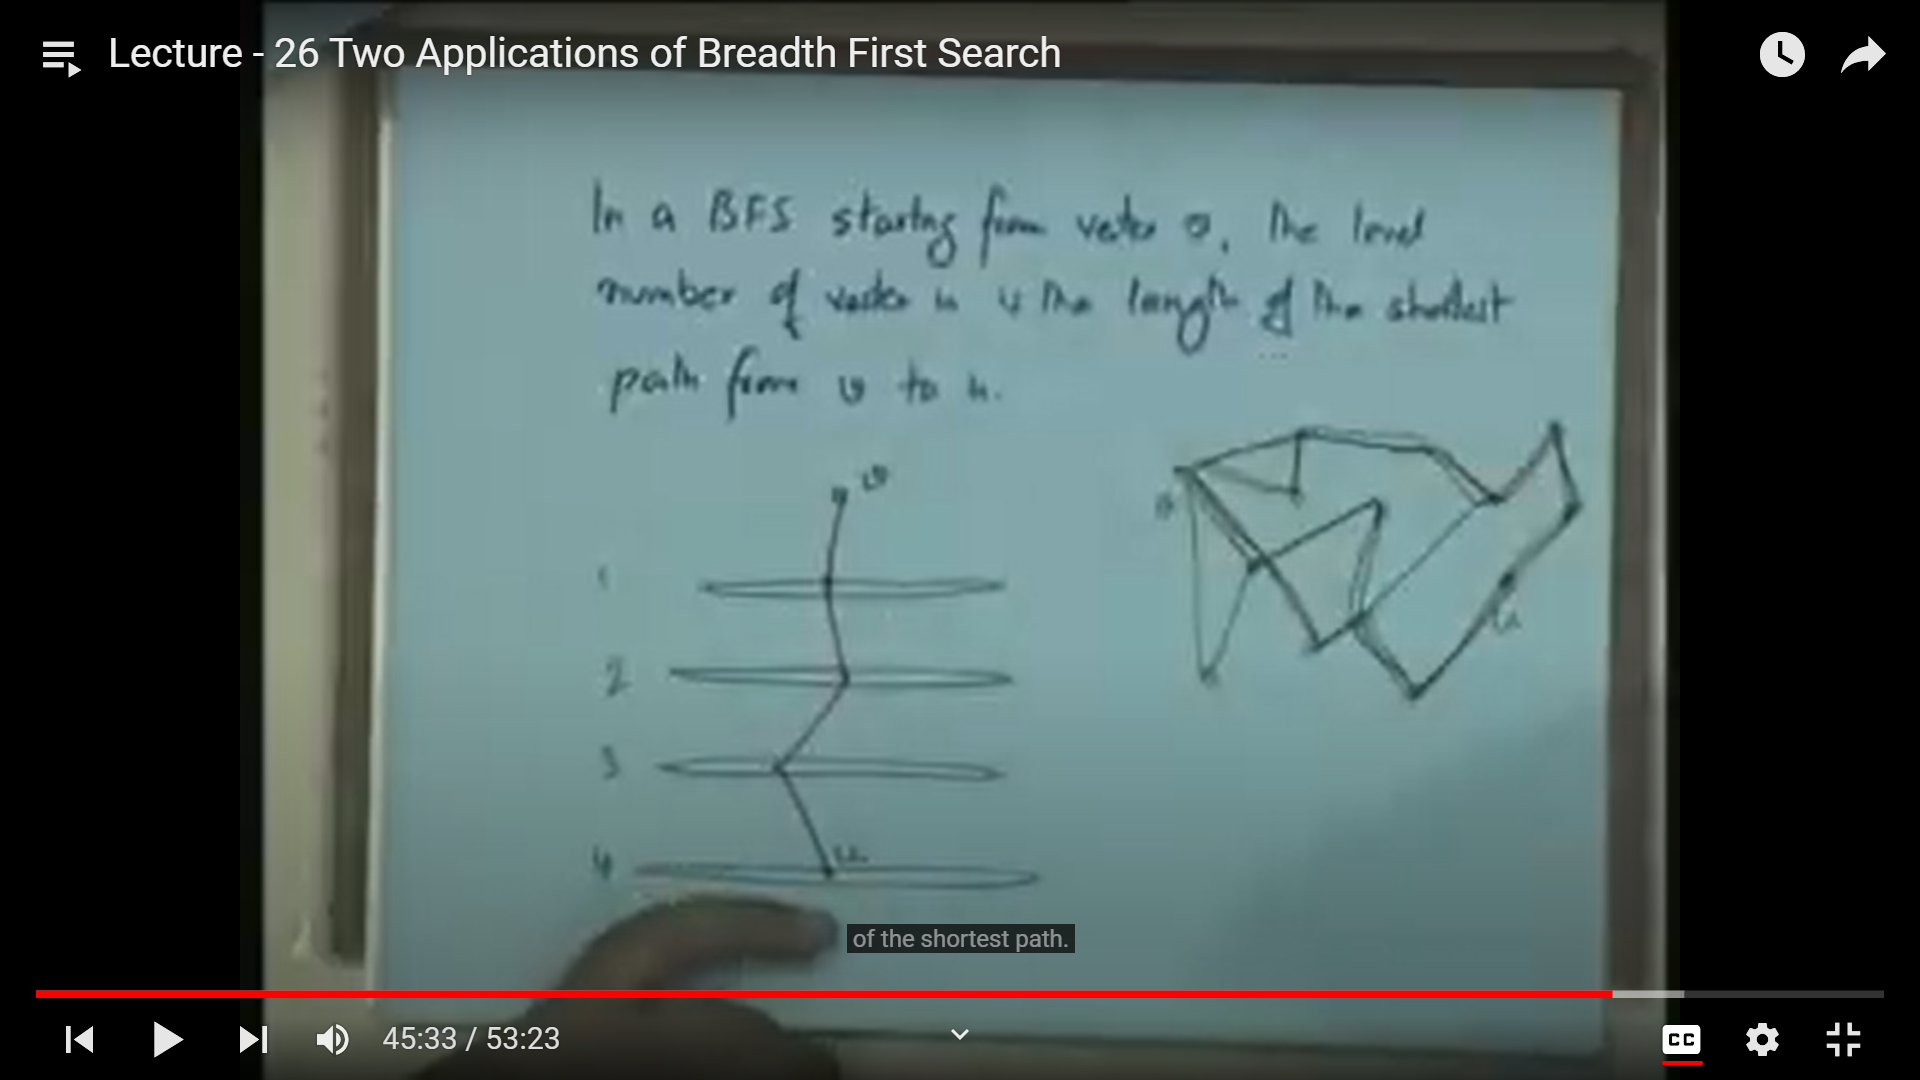 Lecture - 26 Two Applications of Breadth First Search
In a BFS starting from vertex v, the level
number of vertex u is the length of the shortest
path from v to u.
v
1
2
3
4
u
v
u
of the shortest path.
45:33 / 53:23
CC